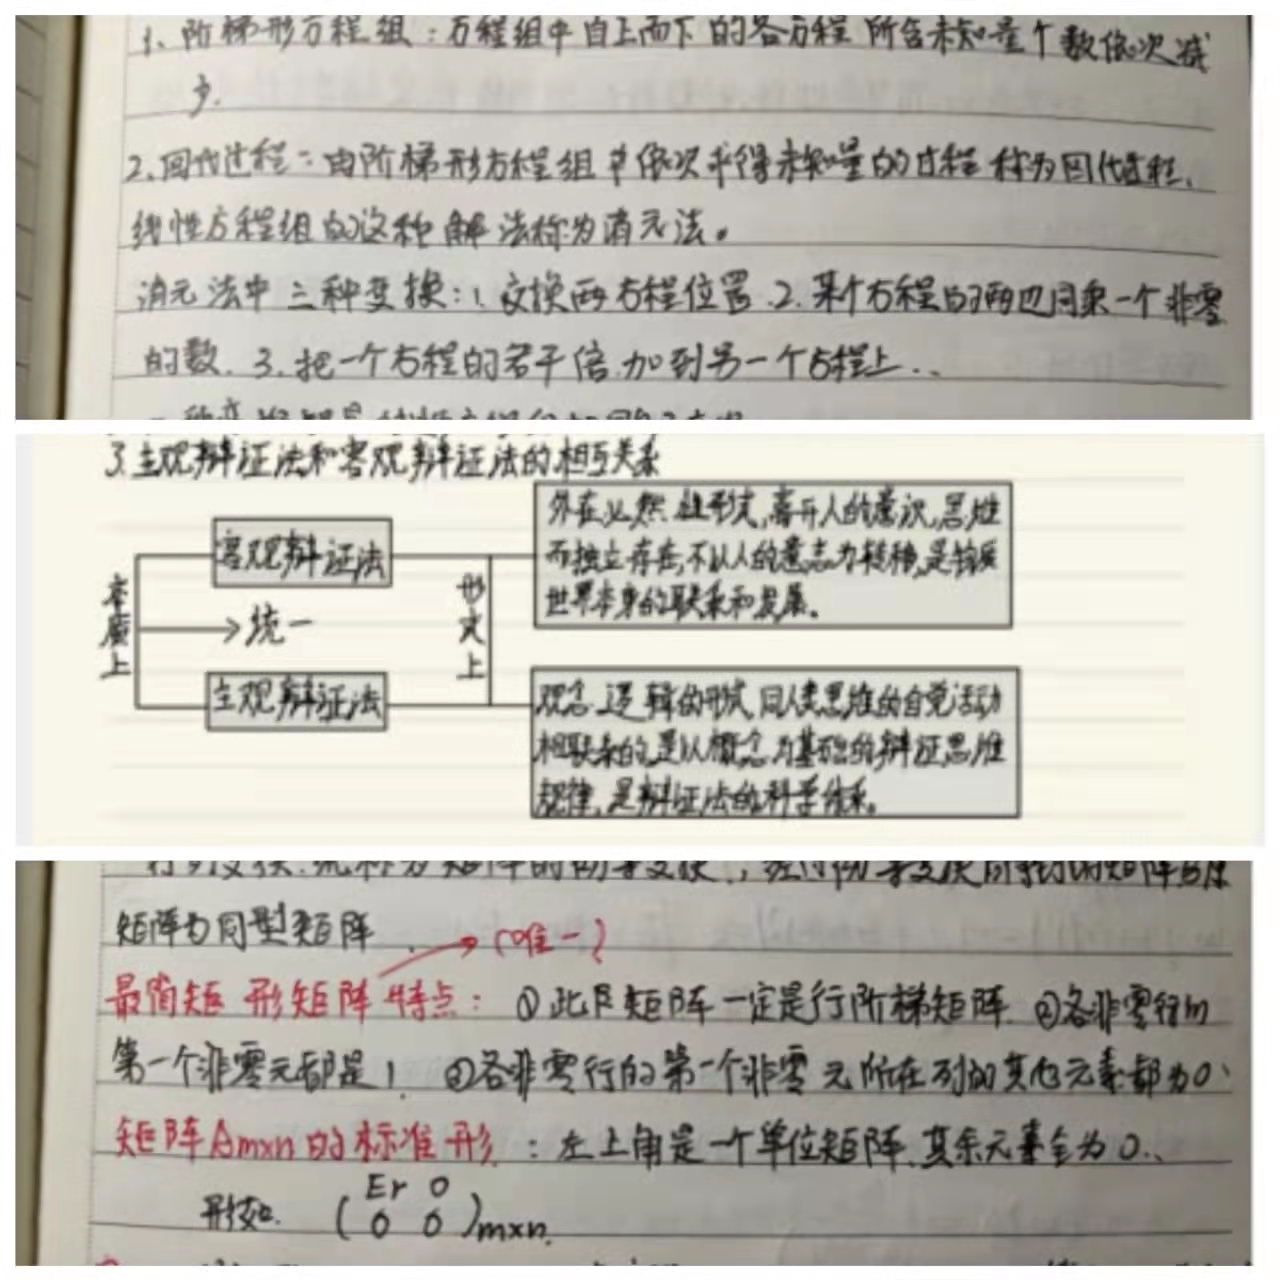 1、阶梯形方程组：方程组中自上而下的各方程所含未知量个数依次减
少.
2、回代过程：由阶梯形方程组中依次求得未知量的过程称为回代过程.
线性方程组的这种解法称为消元法。
消元法中三种变换：1、交换两方程位置.2、某个方程的两边同乘一个非零
的数.3、把一个方程的若干倍加到另一个方程上..
3.主观辩证法和客观辩证法的相互关系
本质上
客观辩证法
统一
主观辩证法
形式上
外在必然性形式,离开人的意识,思维
而独立存在,不以人的意志为转移,是物质
世界本身的联系和发展。
观念逻辑的形式,同人类思维的自觉活动
相联系的,是以概念为基础的辩证思维
规律,是辩证法的科学体系。
矩阵为同型矩阵
(唯一)
最简矩形矩阵特点：①此矩阵一定是行阶梯矩阵.②各非零行的
第一个非零元都是1.③各非零行的第一个非零元所在列的其他元素都为0、
矩阵Am×n的标准形：左上角是一个单位矩阵.其余元素全为0..
形如. (Er 0
0 0)m×n.